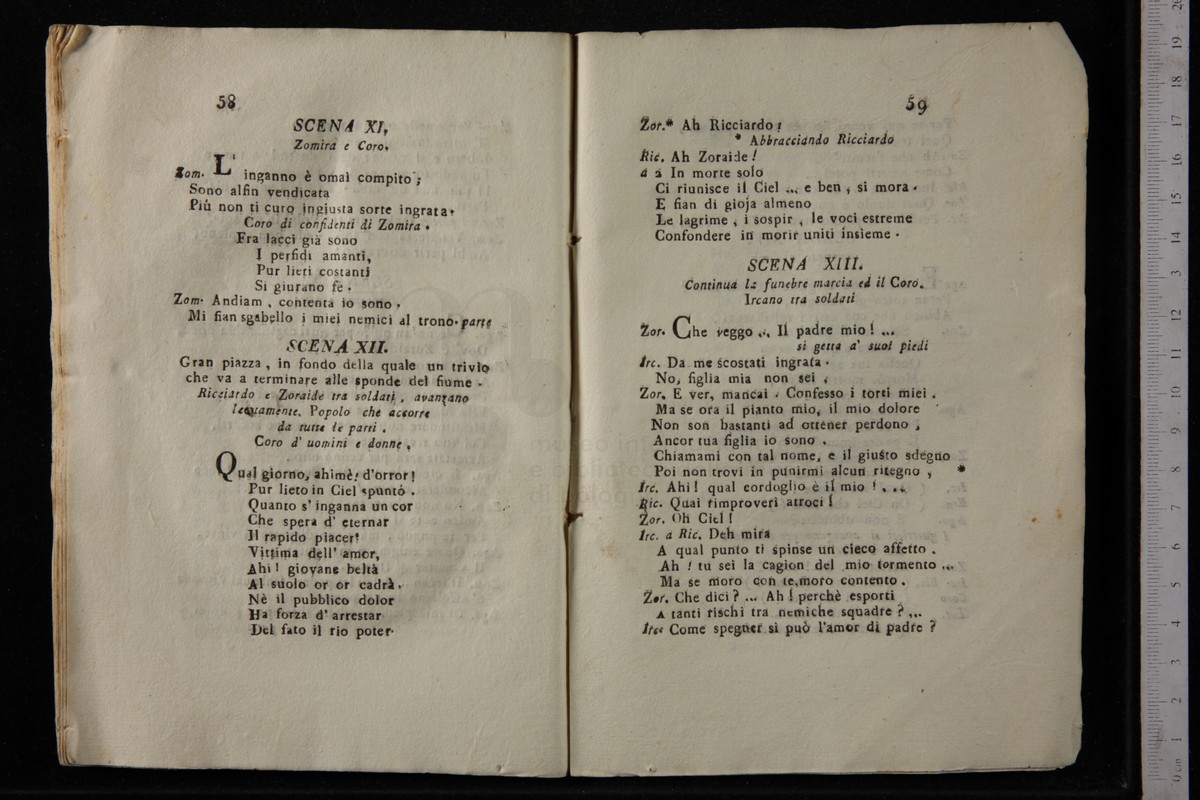 58
SCENA XI,
Zomira e Coro.
Zom. L' inganno è omai compito ;
Sono alfin vendicata
Più non ti curo ingiusta sorte ingrata.
Coro di confidenti di Zomira .
Fra lacci già sono
I perfidi amanti,
Pur lieti costanti
Si giurano fè .
Zom. Andiam , contenta io sono .
Mi fian sgabello i miei nemici al trono. parte
SCENA XII.
Gran piazza , in fondo della quale un trivio
che va a terminare alle sponde del fiume .
Ricciardo e Zoraide tra soldati , avanzano
lentamente. Popolo che accorre
da tutte le parti .
Coro d' uomini e donne ,
Qual giorno, ahimè! d'orror!
Pur lieto in Ciel spuntò .
Quanto s' inganna un cor
Che spera d' eternar
Il rapido piacer!
Vittima dell' amor,
Ahi! giovane beltà
Al suolo or or cadrà.
Nè il pubblico dolor
Ha forza d' arrestar
Del fato il rio poter.
59
Zor.* Ah Ricciardo!
* Abbracciando Ricciardo
Ric. Ah Zoraide!
a 2 In morte solo
Ci riunisce il Ciel ... e ben , si mora .
E fian di gioja almeno
Le lagrime , i sospir , le voci estreme
Confondere in morir uniti insieme .
SCENA XIII.
Continua la funebre marcia ed il Coro.
Ircano tra soldati
Zor. Che veggo ... Il padre mio! ...
si getta a' suoi piedi
Irc. Da me scostati ingrata .
No, figlia mia non sei .
Zor. E ver, mancai . Confesso i torti miei .
Ma se ora il pianto mio, il mio dolore
Non son bastanti ad ottener perdono ,
Ancor tua figlia io sono .
Chiamami con tal nome, e il giusto sdegno
Poi non trovi in punirmi alcun ritegno , *
Irc. Ahi! qual cordoglio è il mio ! ...
Ric. Quai rimproveri atroci!
Zor. Oh Ciel!
Irc. a Ric. Deh mira
A qual punto ti spinse un cieco affetto .
Ah ! tu sei la cagion del mio tormento ...
Ma se moro con te, moro contento .
Zor. Che dici? ... Ah! perchè esporti
A tanti rischi tra nemiche squadre ? ...
Irc. Come spegner si può l'amor di padre ?